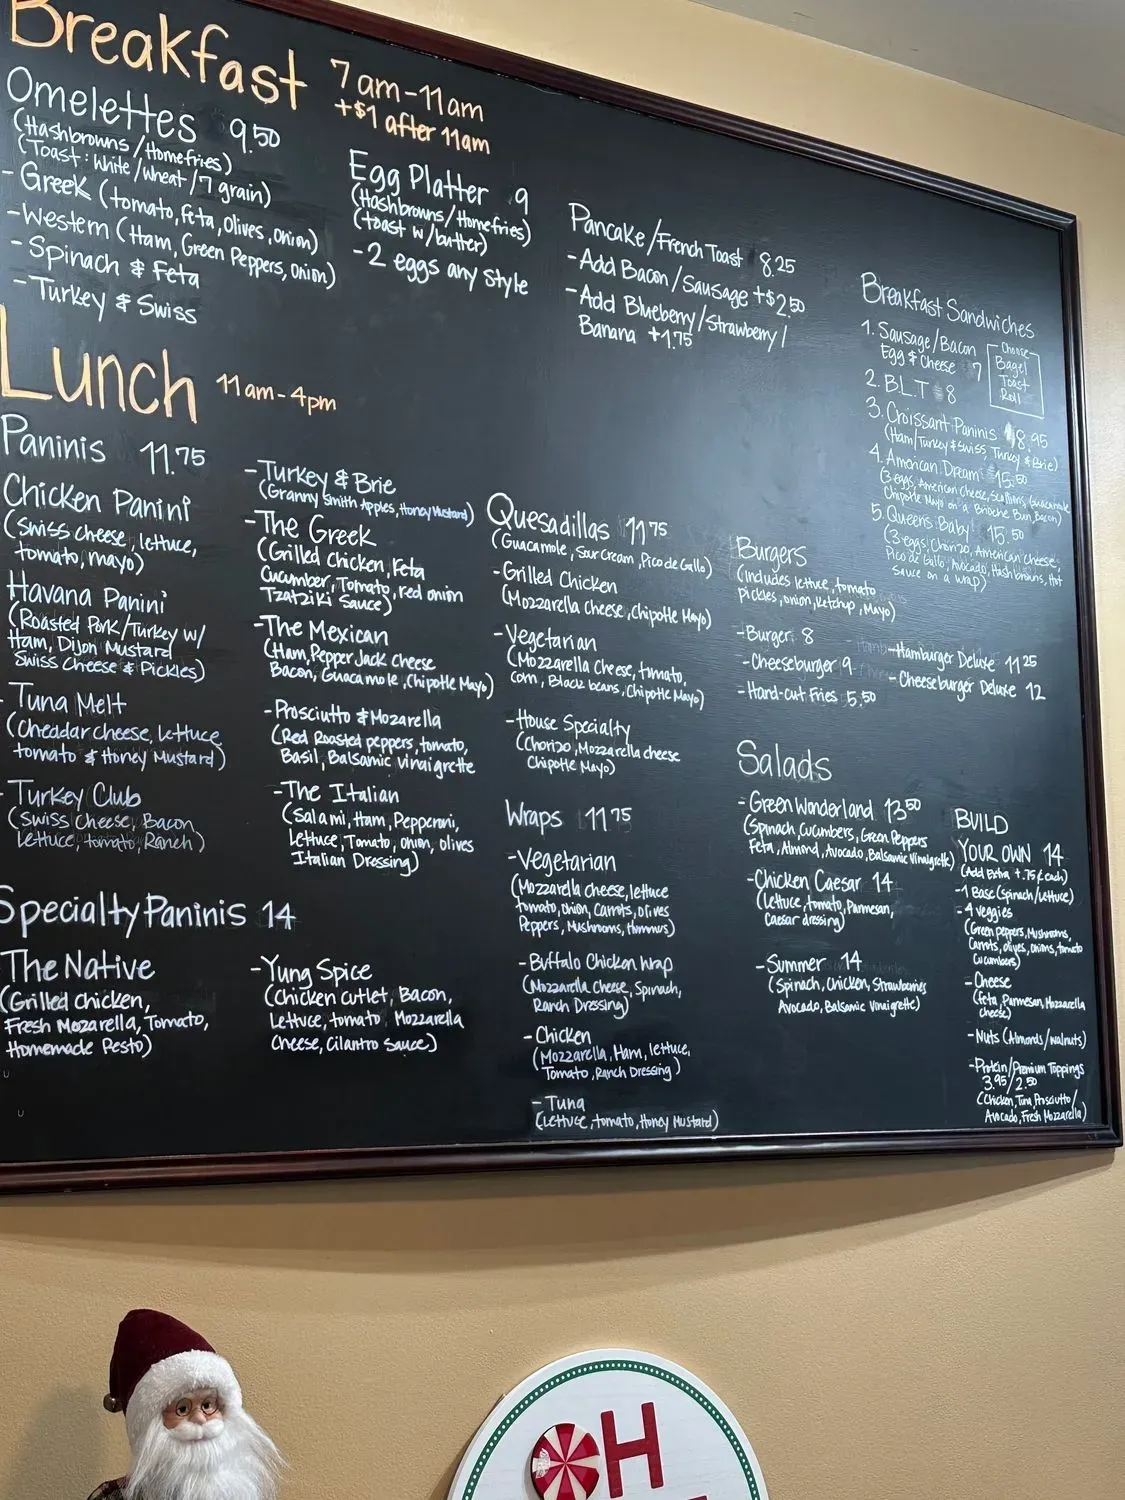 Breakfast 7am-11am
+$1 after 11am
Omelettes 9.50
(Hashbrowns/Homefries)
(Toast: White/Wheat/7 grain)
- Greek (tomato, feta, Olives, Onion)
- Western (Ham, Green Peppers, Onion)
- Spinach & Feta
- Turkey & Swiss
Egg Platter 9
(Hashbrowns/Homefries)
(toast w/butter)
- 2 eggs any style
Pancake/French Toast 8.25
- Add Bacon/Sausage +$2.50
- Add Blueberry/Strawberry/
Banana +1.75
Breakfast Sandwiches
1. Sausage/Bacon
Egg & Cheese 7
Choose
Bagel
Toast
Roll
2. B.L.T $8
3. Croissant Paninis $8.95
(Ham/Turkey & Swiss, Turkey & Brie)
4. American Dream 15.50
(3 eggs, American Cheese, Scallions, Guacamole
Chipotle Mayo on a Brioche Bun, Bacon)
5. Queens Baby 15.50
(3 eggs, Chorizo, American Cheese,
Pico de Gallo, Avocado, Hashbrowns, Hot
Sauce on a wrap)
Lunch 11am-4pm
Paninis 11.75
Chicken Panini
(Swiss cheese, lettuce,
tomato, mayo)
Havana Panini
(Roasted Pork/Turkey w/
Ham, Dijon Mustard
Swiss Cheese & Pickles)
- Tuna Melt
(Cheddar cheese, Lettuce
tomato & Honey Mustard)
- Turkey Club
(Swiss Cheese, Bacon
Lettuce, tomato, Ranch)
- Turkey & Brie
(Granny Smith Apples, Honey Mustard)
- The Greek
(Grilled Chicken, Feta
Cucumber, Tomato, red onion
Tzatziki Sauce)
- The Mexican
(Ham, Pepper Jack Cheese
Bacon, Guacamole, Chipotle Mayo)
- Prosciutto & Mozarella
(Red Roasted peppers, tomato,
Basil, Balsamic vinaigrette
- The Italian
(Salami, Ham, Pepperoni,
Lettuce, Tomato, Onion, olives
Italian Dressing)
Specialty Paninis 14
The Native
(Grilled chicken,
Fresh Mozarella, Tomato,
Homemade Pesto)
- Yung Spice
(Chicken cutlet, Bacon,
Lettuce, tomato, Mozzarella
Cheese, Cilantro sauce)
Quesadillas 11.75
(Guacamole, Sour Cream, Pico de Gallo)
- Grilled Chicken
(Mozzarella Cheese, Chipotle Mayo)
- Vegetarian
(Mozzarella Cheese, tomato,
corn, Black beans, Chipotle Mayo)
- House Specialty
(Chorizo, Mozzarella cheese
Chipotle Mayo)
Wraps 11.75
- Vegetarian
(Mozzarella cheese, lettuce
tomato, Onion, Carrots, olives
Peppers, Mushrooms, Hummus)
- Buffalo Chicken Wrap
(Mozzarella Cheese, Spinach,
Ranch Dressing)
- Chicken
(Mozzarella, Ham, lettuce,
Tomato, Ranch Dressing)
- Tuna
(Lettuce, tomato, Honey Mustard)
Burgers
(includes lettuce, tomato
pickles, onion, Ketchup, Mayo)
- Burger 8
- Cheeseburger 9
- Hand-cut Fries 5.50
- Hamburger Deluxe 11.25
- Cheeseburger Deluxe 12
Salads
- Green Wonderland 13.50
(Spinach, Cucumbers, Green Peppers
Feta, Almond, Avocado, Balsamic Vinaigrette)
- Chicken Caesar 14
(Lettuce, tomato, Parmesan,
Caesar dressing)
- Summer 14
(Spinach, Chicken, Strawberries
Avocado, Balsamic Vinaigrette)
BUILD
YOUR OWN 14
(Add Extra +.75¢ each)
- 1 Base (Spinach/Lettuce)
- 4 veggies
(Green peppers, Mushrooms,
Carrots, olives, onions, tomato
Cucumbers)
- Cheese
(Feta, Parmesan, Mozzarella
Cheese)
- Nuts (Almonds/walnuts)
- Protein/Premium Toppings
3.95/2.50
(Chicken, Tuna, Prosciutto/
Avocado, Fresh Mozzarella)
OH